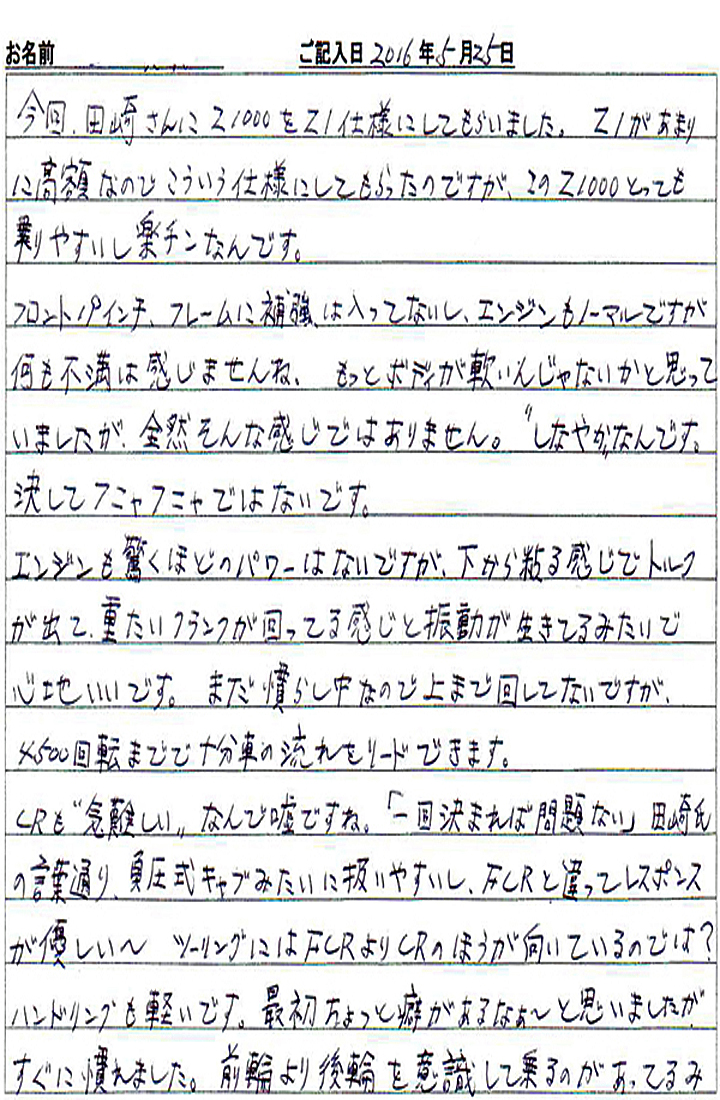 お名前 ご記入日 2016年5月25日
今回、田崎さんにZ1000をZ1仕様にしてもらいました。 Z1があまり
に高額なのでこういう仕様にしてもらったのですが、このZ1000とっても
乗りやすいし楽チンなんです。
フロント19インチ、フレームに補強は入ってないし、エンジンもノーマルですが
何も不満は感じませんね、 もっとボディが軟いんじゃないかと思って
いましたが、全然そんな感じではありません。 "しなやか"なんです。
決してフニャフニャではないです。
エンジンも驚くほどのパワーはないですが、下から粘る感じでトルク
が出て、重たいクランクが回ってる感じと振動が生きてるみたいで
心地いいです。 まだ慣らし中なので上まで回してないですが、
4500回転までで十分車の流れをリードできます。
CRも"気難しい"なんて嘘ですね。「一回決まれば問題ない」田崎氏
の言葉通り、負圧式キャブみたいに扱いやすいし、FCRと違ってレスポンス
が優しい〜 ツーリングにはFCRよりCRのほうが向いているのでは?
ハンドリングも軽いです。最初ちょっと癖があるなぁ〜と思いましたが
すぐに慣れました。前輪より後輪を意識して乗るのがあってるみ